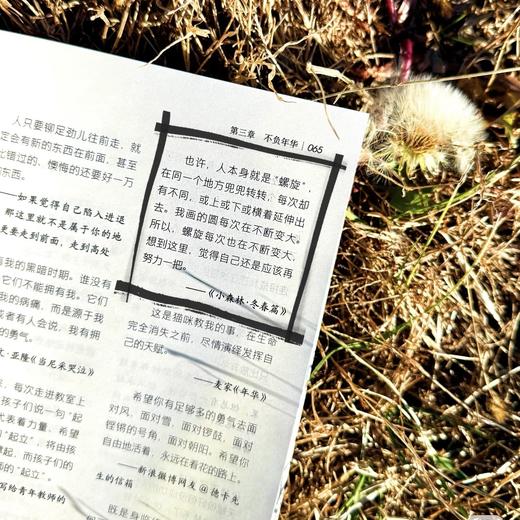 第三章 不负年华 065
人只要铆足劲儿往前走，就
定会有新的东西在前面，甚至
错过的、懊悔的还要好一万
东西。
——如果觉得自己陷入进退
那这里就不是属于你的地
更要走到前面，走到高处
我的黑暗时期。谁没有
它们不能拥有我。它们
我的病痛，而是源于我
或者有人会说，我有拥
的勇气。
·亚隆《当尼采哭泣》
，每次走进教室上
孩子们说一句“起
代表着力量，希望
的“起立”，将由孩
，而孩子们的
的“起立”。
写给青年教师的
也许，人本身就是“螺旋”，
在同一个地方兜兜转转，每次却
有不同，或上或下或横着延伸出
去。我画的圆每次在不断变大，
所以，螺旋每次也在不断变大。
想到这里，觉得自己还是应该再
努力一把。
——《小森林·冬春篇》
这是猫咪教我的事，在生命
完全消失之前，尽情演绎发挥自
己的天赋。
——麦家《年华》
希望你有足够多的勇气去面
对风，面对雪，面对锣鼓，面对
铿锵的号角，面对朝阳。希望你
自由地活着，永远在看花的路上。
——新浪微博网友@德卡先
生的信箱
既是身临